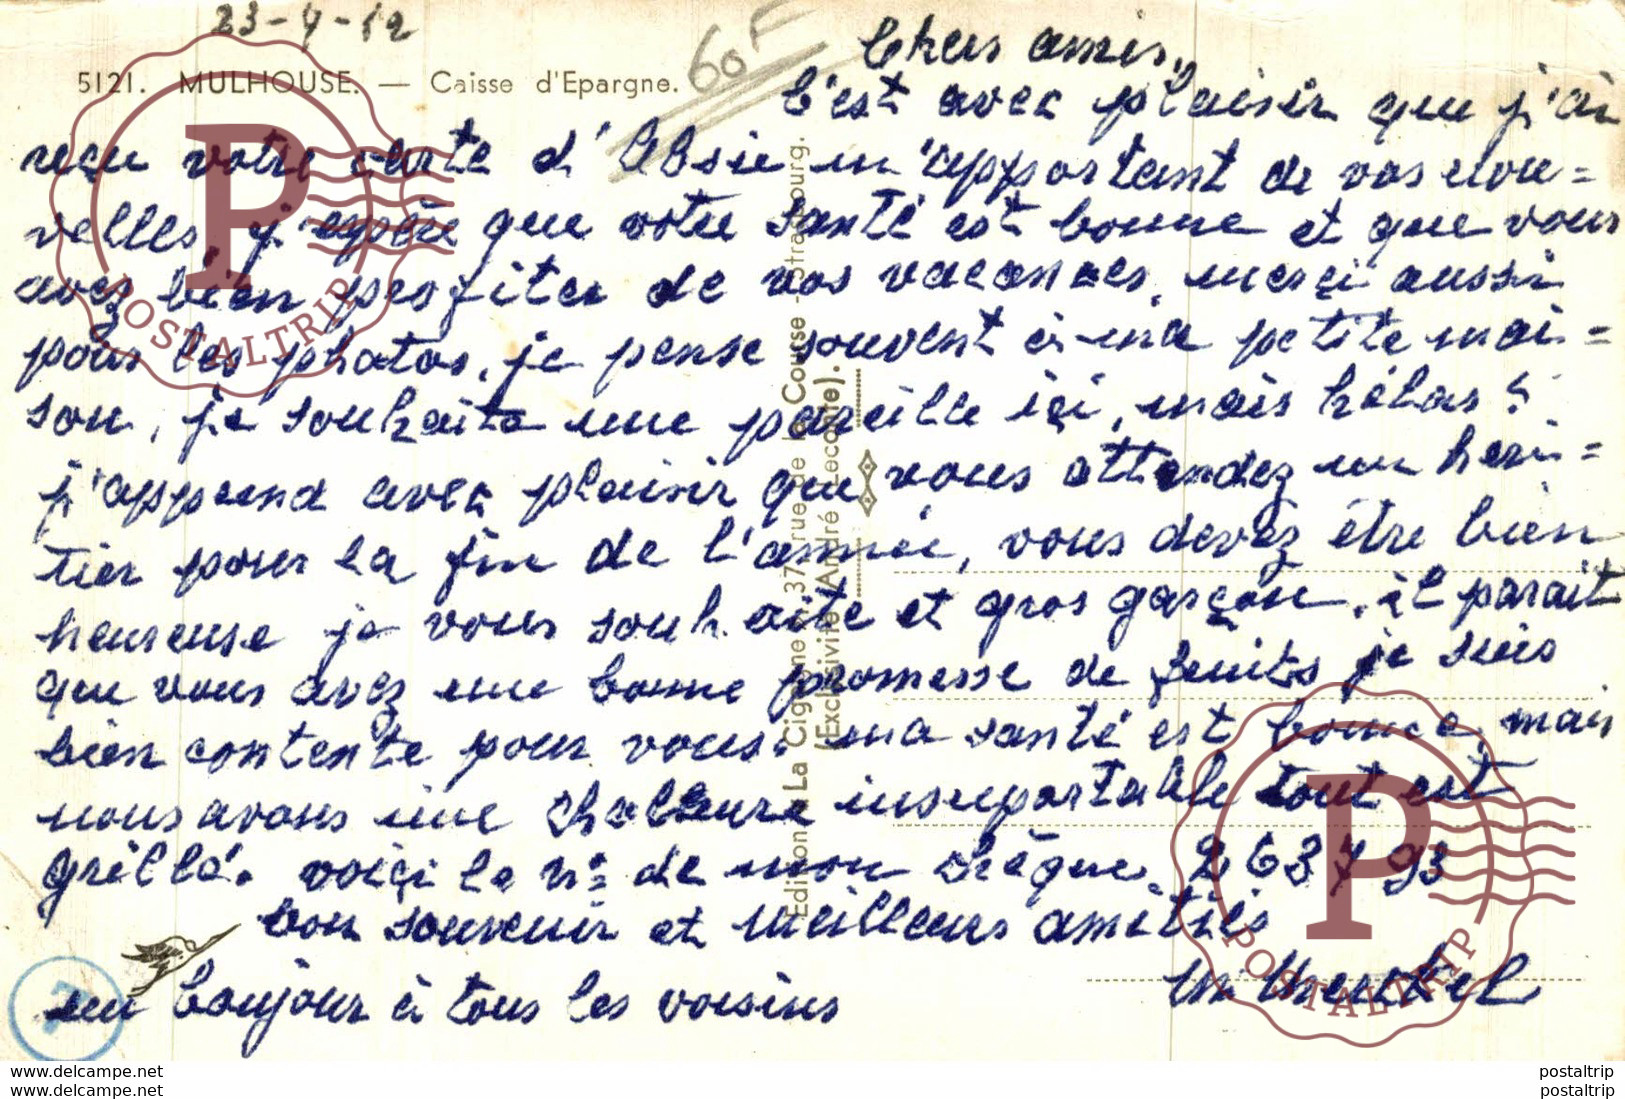 23-7-52
5121. MULHOUSE. — Caisse d'Epargne.
60F
Chers amis,
C'est avec plaisir que j'ai
reçu votre carte d' m'apportant de vos nou=
velles, j'espère que votre santé est bonne et que vous
avez bien profiter de vos vacances, merçi aussi
pour les photos, je pense souvent à ma petite mai=
son, je souhaite une pareille içi, mais hélas!
j'apprend avec plaisir que vous attendez un heri=
tier pour la fin de l'année, vous devez être bien
heureuse je vous souhaite et gros garçon, il parait
que vous avez une bonne promesse de fruits je suis
bien contente pour vous. ma santé est bonne, mais
nous avons une chaleure insuportable tout est
grillé. voiçi le n° de mon chèque. 263793
bon souvenir et meilleurs amitiés
un bonjour à tous les voisins
Edition La Cigogne, 37, rue de la Course - Strasbourg.
(Exclusivité André Leconte).
P
POSTALTRIP
P
POSTALTRIP
www.delcampe.net
www.delcampe.net
postaltrip
postaltrip